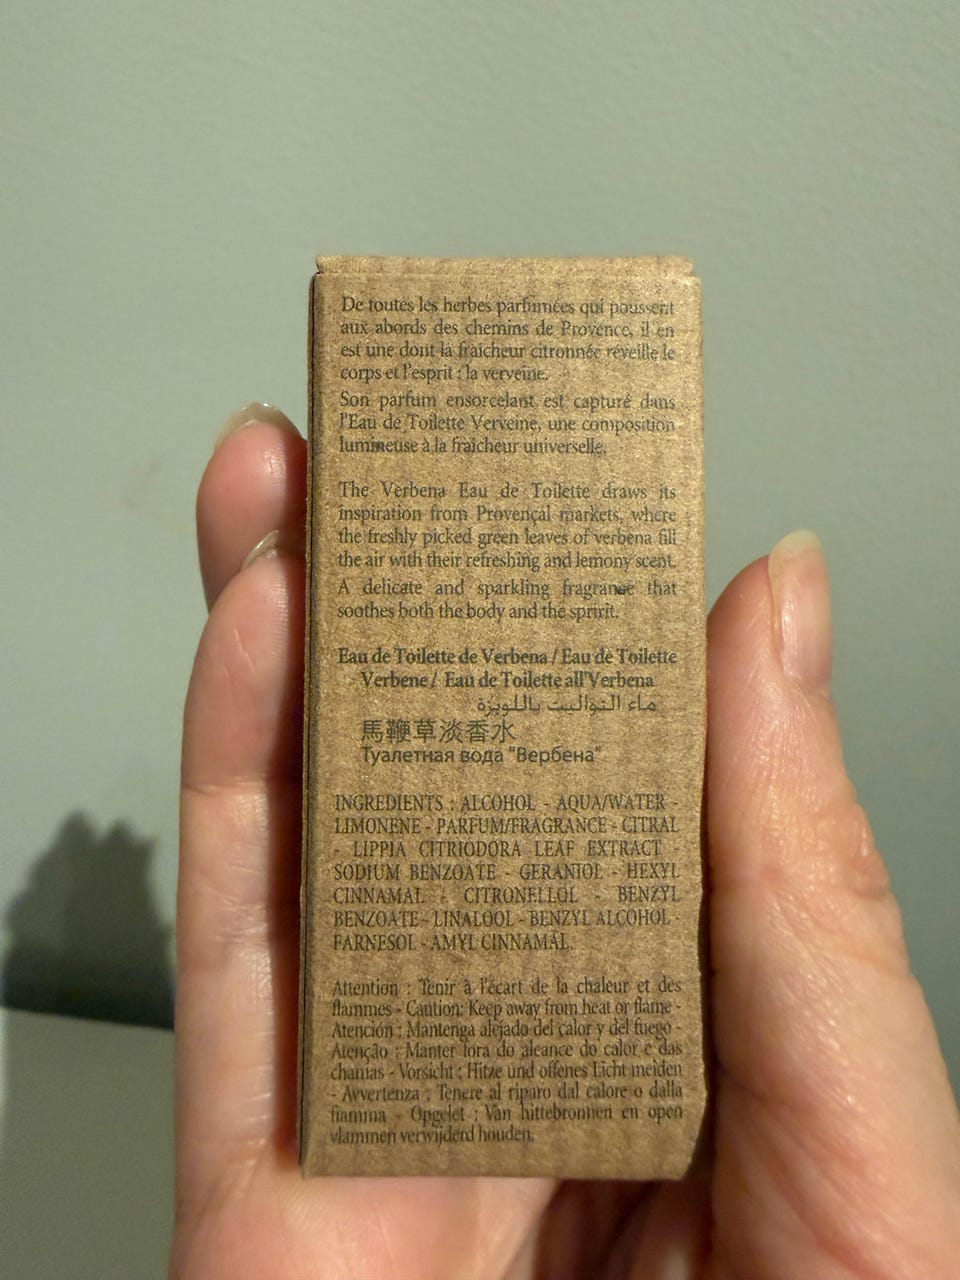 De toutes les herbes parfumées qui poussent
aux abords des chemins de Provence, il en
est une dont la fraîcheur citronnée réveille le
corps et l'esprit : la verveine.
Son parfum ensorcelant est capturé dans
l'Eau de Toilette Verveine, une composition
lumineuse à la fraîcheur universelle.
The Verbena Eau de Toilette draws its
inspiration from Provençal markets, where
the freshly picked green leaves of verbena fill
the air with their refreshing and lemony scent.
A delicate and sparkling fragranse that
soothes both the body and the spririt.
Eau de Toilette de Verbena / Eau de Toilette
Verbene / Eau de Toilette all'Verbena
ماء التواليت باللويزة
馬鞭草淡香水
Туалетная вода "Вербена"
INGREDIENTS : ALCOHOL - AQUA/WATER -
LIMONENE - PARFUM/FRAGRANCE - CITRAL
- LIPPIA CITRIODORA LEAF EXTRACT -
SODIUM BENZOATE - GERANIOL - HEXYL
CINNAMAL - CITRONELLOL - BENZYL
BENZOATE - LINALOOL - BENZYL ALCOHOL -
FARNESOL - AMYL CINNAMAL.
Attention : Tenir à l'écart de la chaleur et des
flammes - Caution: Keep away from heat or flame -
Atención : Mantenga alejado del calor y del fuego -
Atenção : Manter fora do alcance do calor e das
chamas - Vorsicht : Hitze und offenes Licht meiden
- Avvertenza : Tenere al riparo dal calore o dalla
fiamma - Opgelet : Van hittebronnen en open
vlammen verwijderd houden.